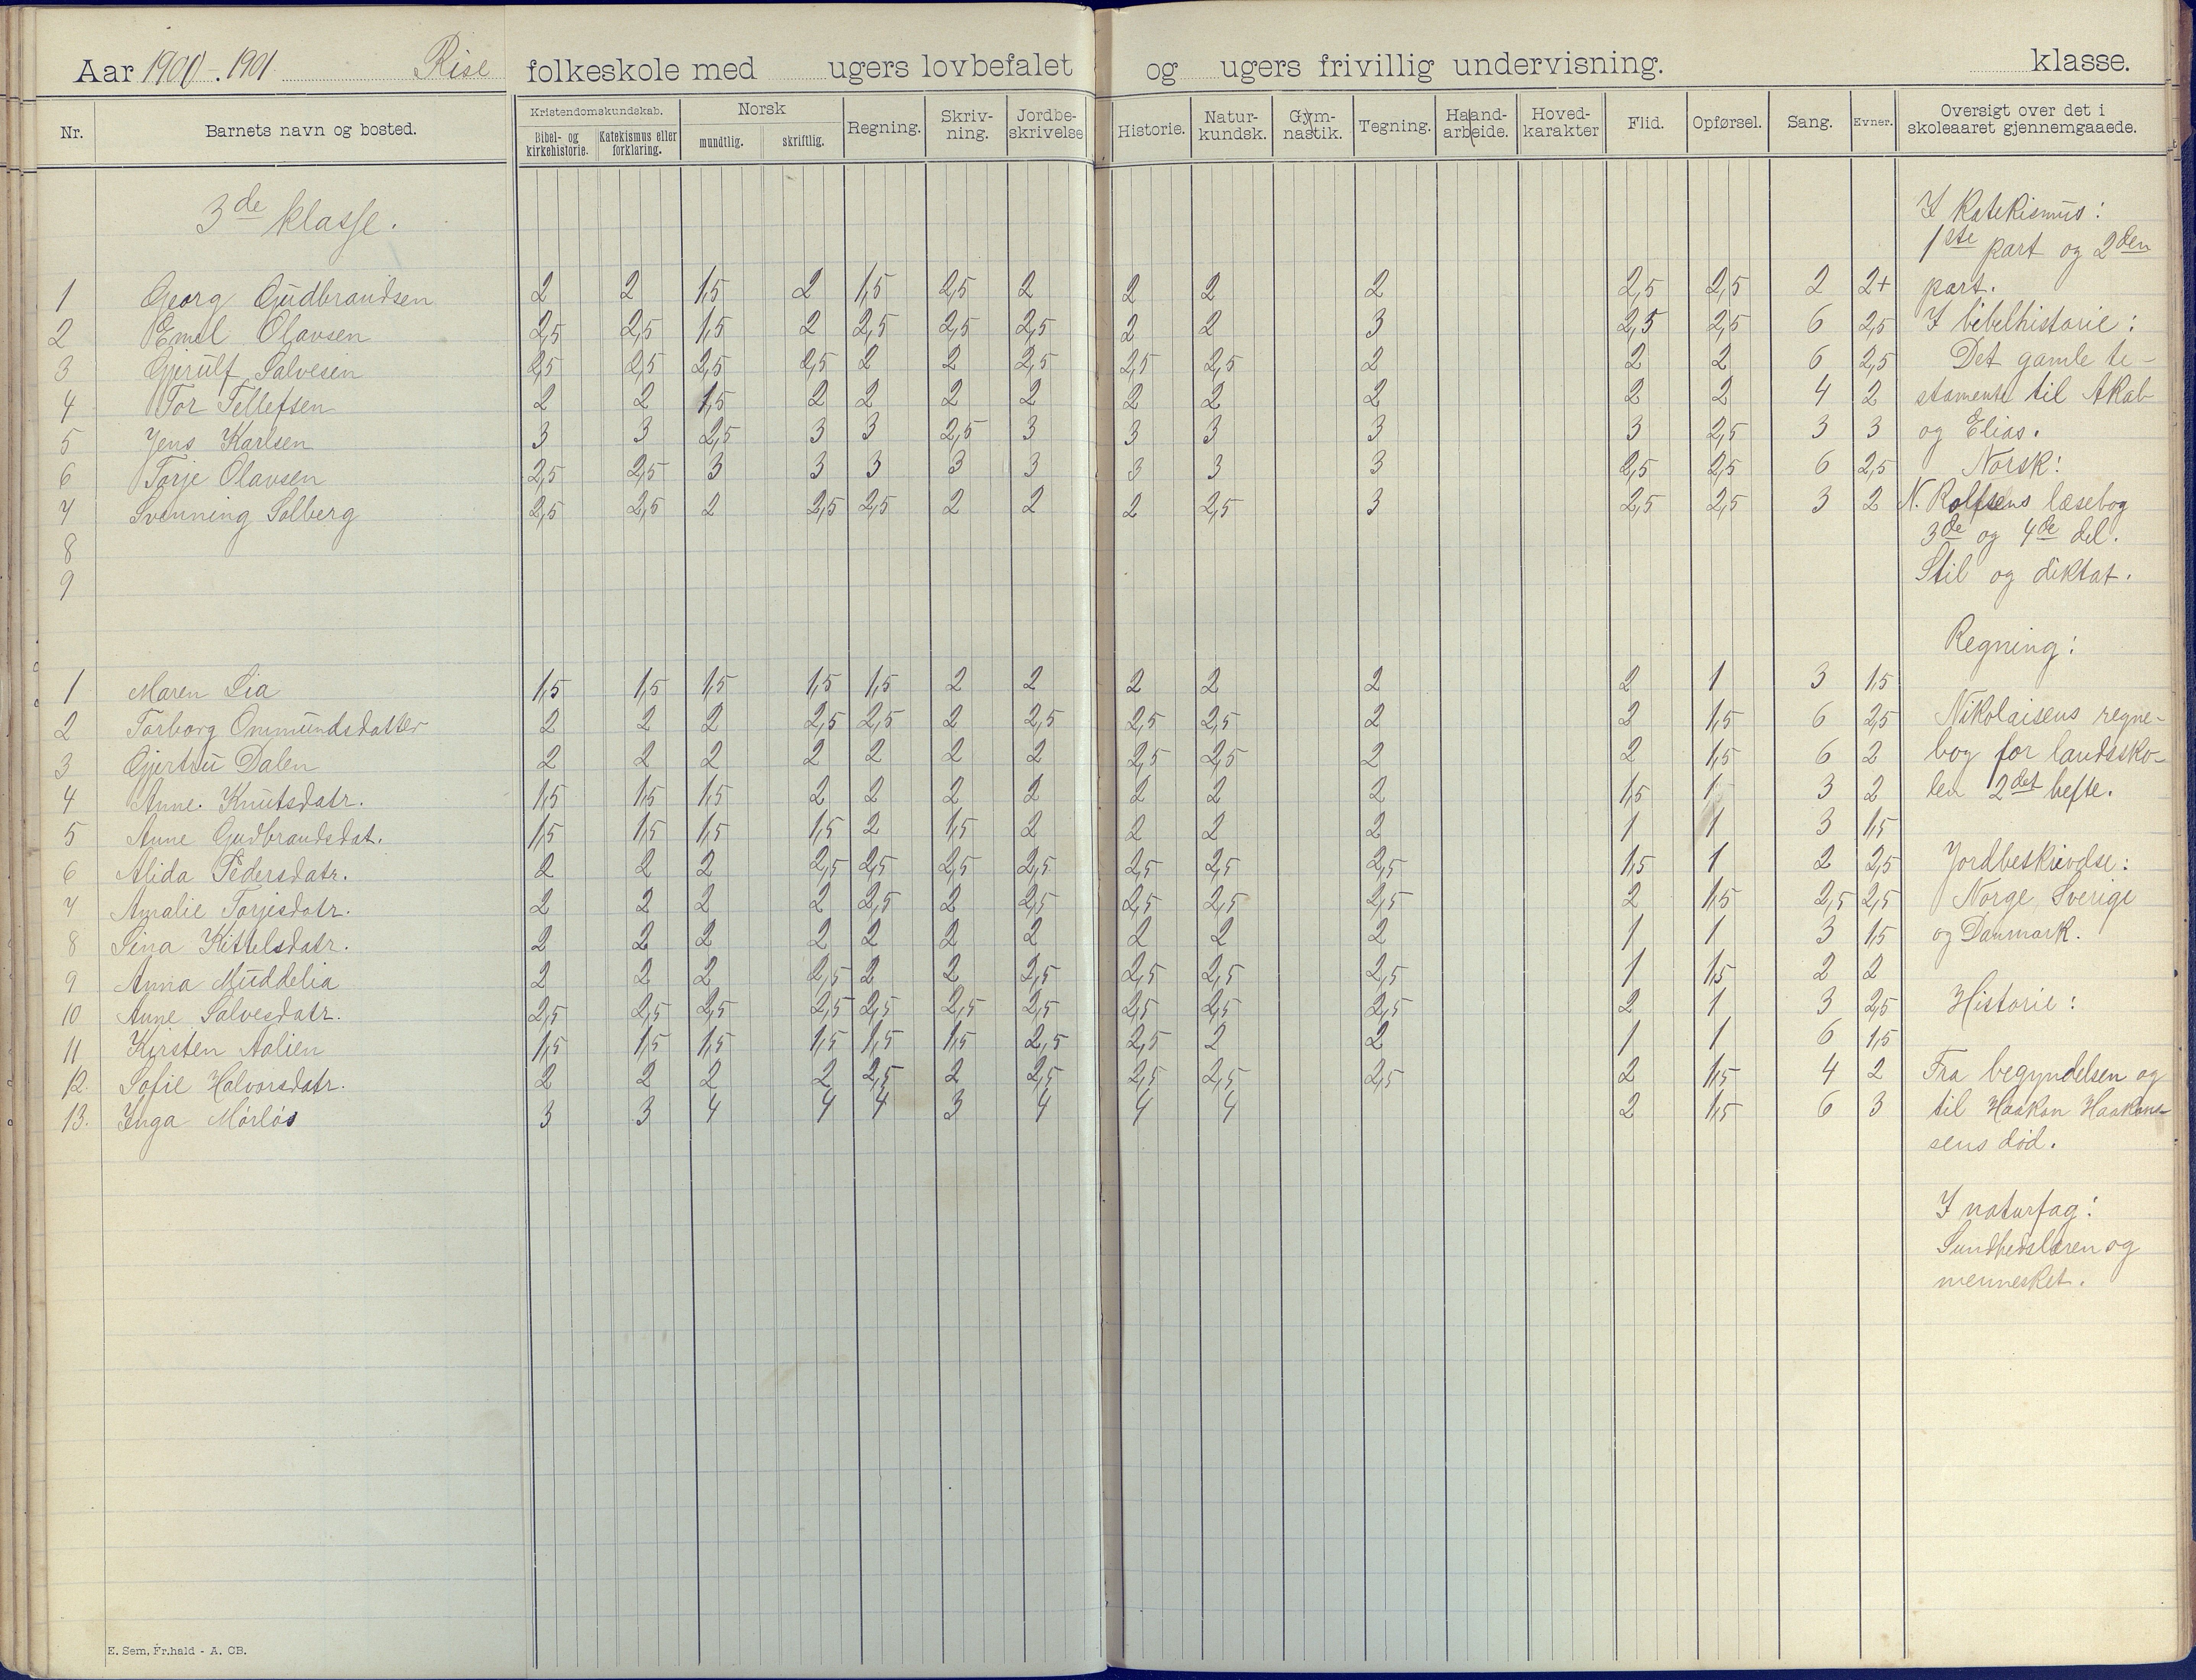 Aar 1900-1901 Rise folkeskole med ugers lovbefalet og ugers frivillig undervisning. klasse.
Nr. Barnets navn og bosted. Kristendomskundskab. Bibel- og kirkehistorie. Katekismus eller forklaring. Norsk mundtlig. skriftlig. Regning. Skriv-ning. Jordbe-skrivelse Historie. Natur-kundsk. Gym-nastik. Tegning. Haand-arbeide. Hoved-karakter Flid. Opførsel. Sang. Evner. Oversigt over det i skoleaaret gjennemgaaede.
3de klasse.
1 Georg Gudbrandsen 2 2 1,5 2 1,5 2,5 2 2 2 2 2,5 2,5 2 2+
2 Emil Olavsen 2,5 2,5 1,5 2 2,5 2,5 2,5 2 2 3 2,5 2,5 6 2,5
3 Gjerulf Salvesen 2,5 2,5 2,5 2,5 2 2 2,5 2,5 2,5 2 2 2 6 2,5
4 Tor Tellefsen 2 2 1,5 2 2 2 2 2 2 2 2 2 4 2
5 Jens Karlsen 3 3 2,5 3 3 2,5 3 3 3 3 3 2,5 3 3
6 Torje Olavsen 2,5 2,5 3 3 3 3 3 3 3 3 2,5 2,5 6 2,5
7 Svenning Solberg 2,5 2,5 2 2,5 2,5 2 2 2 2,5 3 2,5 2,5 3 2
8
9
1 Maren Lia 1,5 1,5 1,5 1,5 1,5 2 2 2 2 2 2 1 3 1,5
2 Torborg Ommundsdatter 2 2 2 2,5 2,5 2 2,5 2,5 2,5 2 2 1,5 6 2,5
3 Gjertru Dalen 2 2 2 2 2 2 2 2,5 2,5 2 2 1,5 6 2
4 Anne Knutsdatr. 1,5 1,5 1,5 2 2 2 2 2 2 2 1,5 1 3 2
5 Anne Gudbrandsdat. 1,5 1,5 1,5 1,5 2 1,5 2 2 2 2 1 1 3 1,5
6 Alida Pedersdatr. 2 2 2 2,5 2,5 2,5 2,5 2,5 2,5 2,5 1,5 1 2 2,5
7 Amalie Torjesdatr. 2 2 2 2 2,5 2 2,5 2,5 2,5 2,5 2 1,5 2,5 2,5
8 Sina Kittelsdatr. 2 2 2 2 2 2 2 2 2 2 1 1 3 1,5
9 Anna Muddelia 2 2 2 2,5 2 2 2,5 2,5 2,5 2,5 1 1,5 2 2
10 Anne Salvesdatr. 2,5 2,5 2,5 2,5 2,5 2,5 2,5 2,5 2,5 2,5 2 1 3 2,5
11 Kirsten Aalien 1,5 1,5 1,5 1,5 1,5 1,5 2,5 2,5 2 2 1 1 6 1,5
12. Sofie Halvorsdatr. 2 2 2 2 2,5 2 2,5 2,5 2,5 2,5 2 1,5 4 2
13. Inga Mörlös 3 3 4 4 4 3 4 4 4 2 1,5 6 3
I Katekismus:
1ste part og 2den
part.
I bibelhistorie:
Det gamle te-
stamente til Akab
og Elias.
Norsk:
N. Rolfsens læsebog
3de og 4de del.
Stil og diktat.
Regning:
Nikolaisens regne-
bog for landssko-
len 2det hefte.
Jordbeskrivelse:
Norge, Sverige
og Danmark.
Historie:
Fra begyndelsen og
til Haakon Haakons-
sens död.
I naturfag:
Sundhedslæren og
mennesket.
E. Sem, Fr.hald - A. CB.